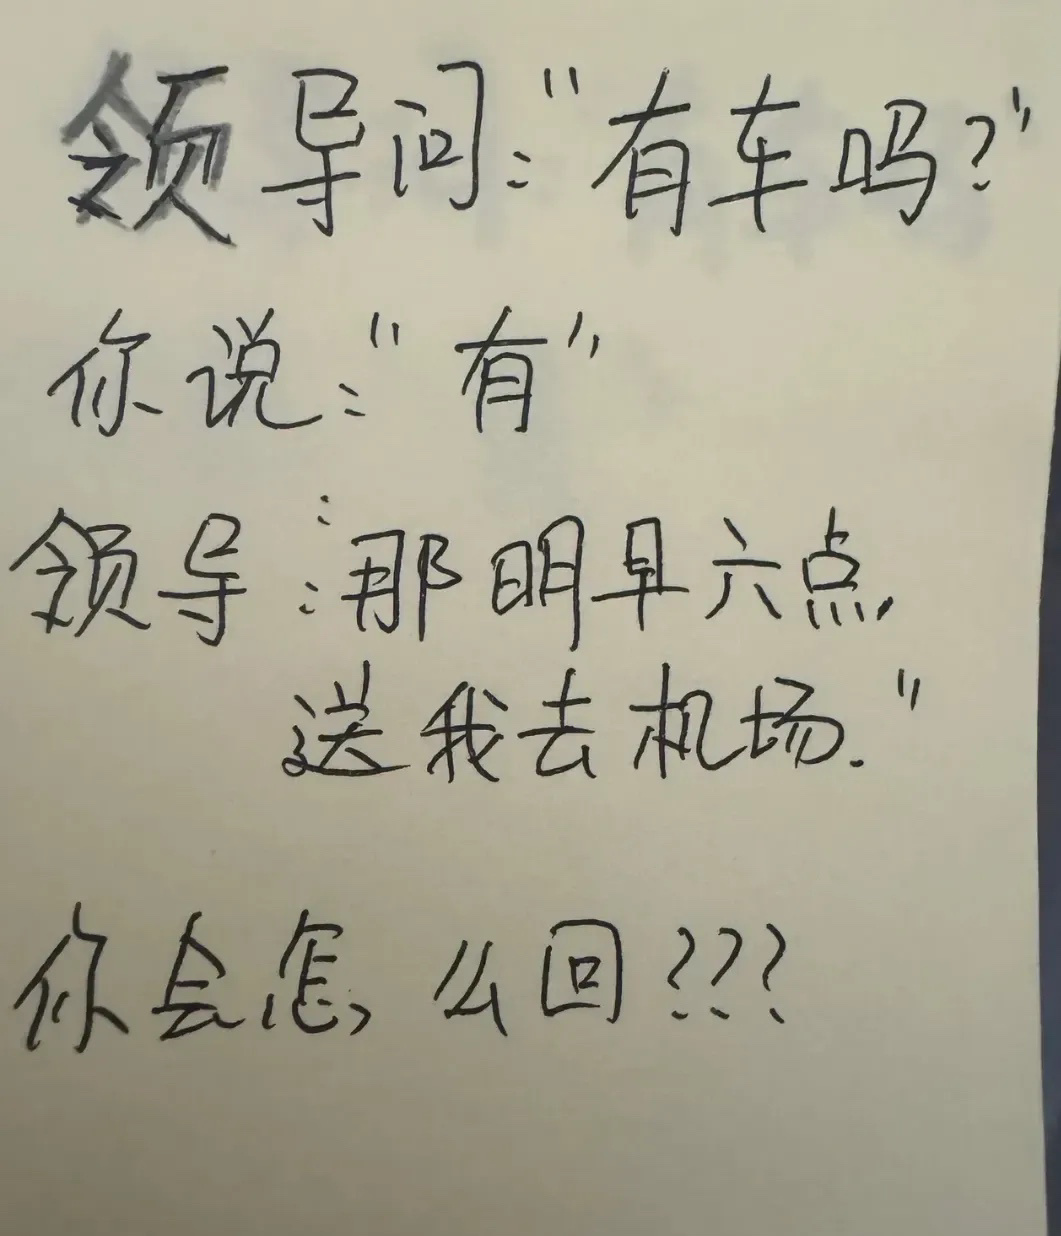 领导问："有车吗？"
你说："有"
领导："那明早六点，
送我去机场."
你会怎么回???